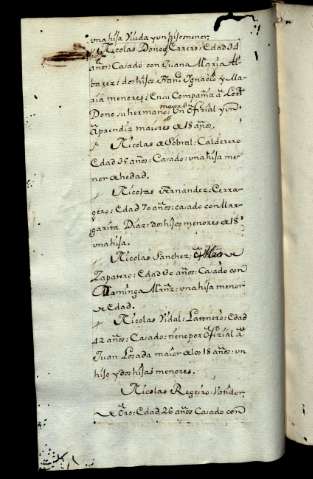 una hija Viuda y un hijo menor
Nicolas Donos Carcas: Edad
años: Casado con Juana Maria Al
barez: dos hijos: Franco Ignacio y Ma
ria menores: En su Compañia a
Dono, su hermano: Un Ofizial y un
Aprendiz maiores a 18 años.
Nicolas a Sobral: Calderero
Edad años: Casado: una hija me
nor a hedad.
Nicolas Fernandez: Cerra
gero: Edad 70 años: casado con Mar
garita Diaz: dos hijos menores a 18 y
una hija.
Nicolas Sanchez:
Zapatero: Edad años: Casado con
Dominga Muñiz: una hija menor
a Edad.
Nicolas Vidal: Latonero: Edad
42 años: Casado: tiene por Ofizial a
Juan Losada maior a los 18 años: un
hijo y dos hijas menores.
Nicolas Regeiro:
a Oro: Edad 26 años Casado con